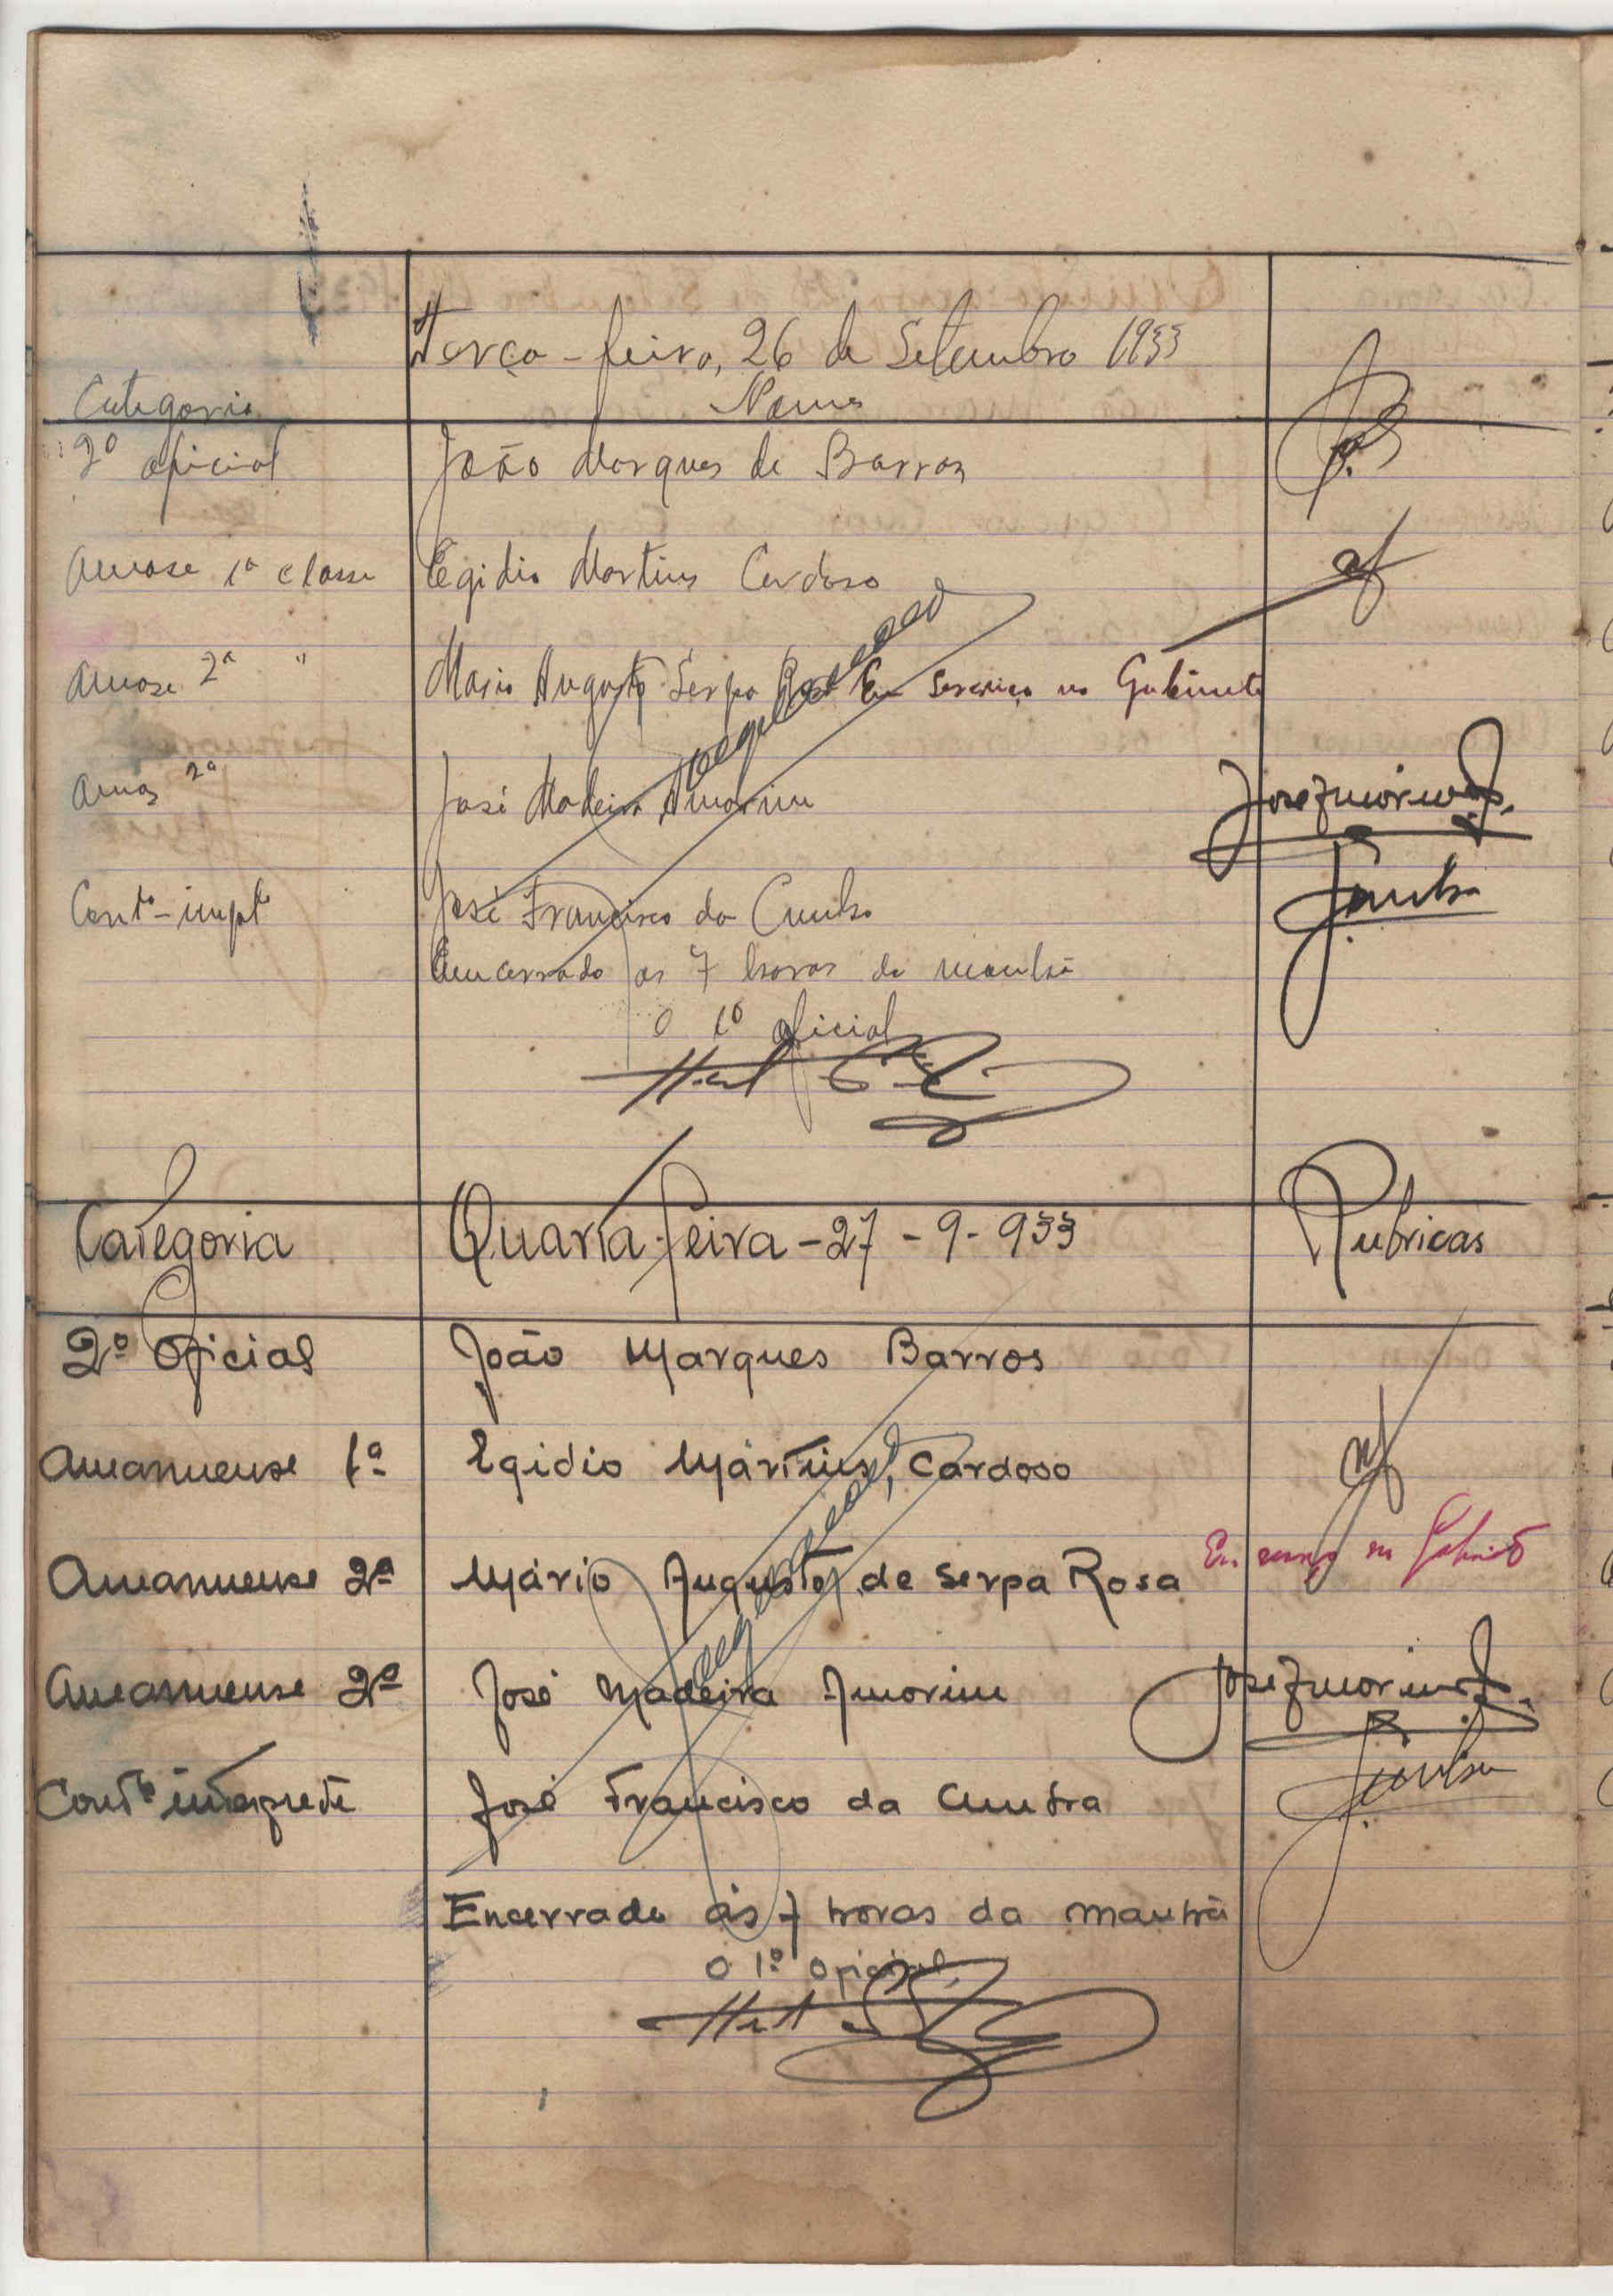 Terça-feira, 26 de Setembro 1933
Categoria Nomes
2º oficial João Marques de Barros
Amase 1ª classe Egidio Martins Cardoso
Amase 2ª " Mario Augusto Serpa Rosa Em serviço no Gabinete
Amas 2ª José Madeira Amorim JoseAmorim
Contº-inptº José Francisco da Cunha JCunha
Emcerrado as 7 horas da manhã
O 1º oficial
Categoria Quarta-feira-27-9-933 Rubricas
2º Oficial João Marques Barros
Amanuense 1ª Egidio Martins, Cardoso
Amanuense 2ª Mário Augusto de Serpa Rosa Em serviço no Gabinete
Amanuense 2ª José Madeira Amorim JoseAmorim
Contº interprete José Francisco da Cunha JCunha
Encerrado ás 7 horas da manhã
O 1º Oficial,